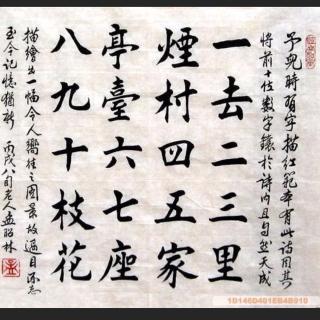 予兒時習字描紅範本有此詩因其
將前十位數字鑲於詩內且自然天成
一去二三里
煙村四五家
亭臺六七座
八九十枝花
描繪出一幅令人嚮往之圖景故過目不忘
至今記憶猶新 丙戌八旬老人孟昭林
1D146D401EB4B910